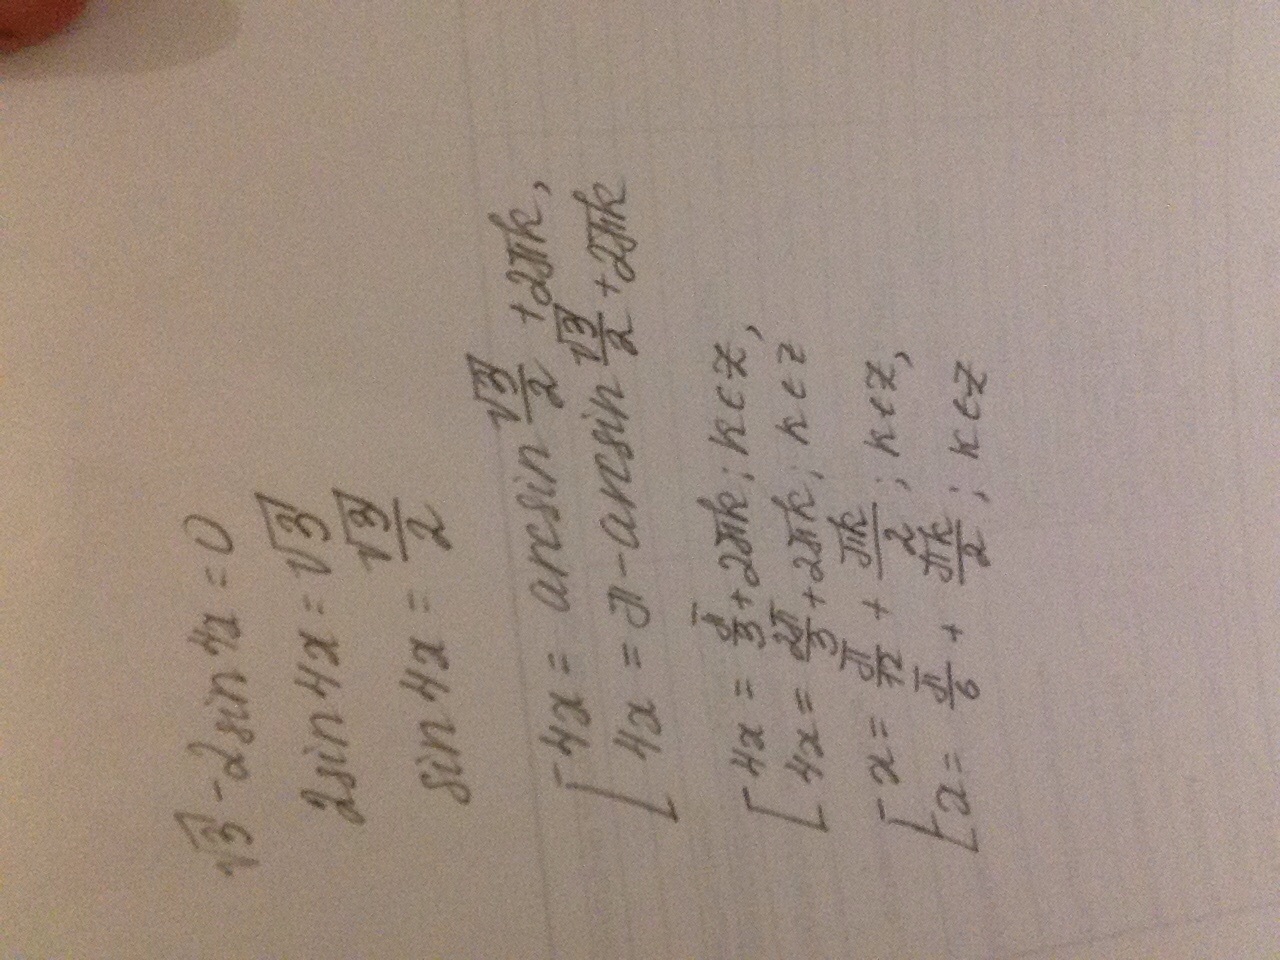 √3 - 2sin 4x = 0
2sin 4x = √3
sin 4x = √3/2
[ 4x = arcsin √3/2 + 2πk,
4x = π - arcsin √3/2 + 2πk
[ 4x = π/3 + 2πk; k∈Z,
4x = 2π/3 + 2πk; k∈Z
[ x = π/12 + πk/2; k∈Z,
x = π/6 + πk/2; k∈Z